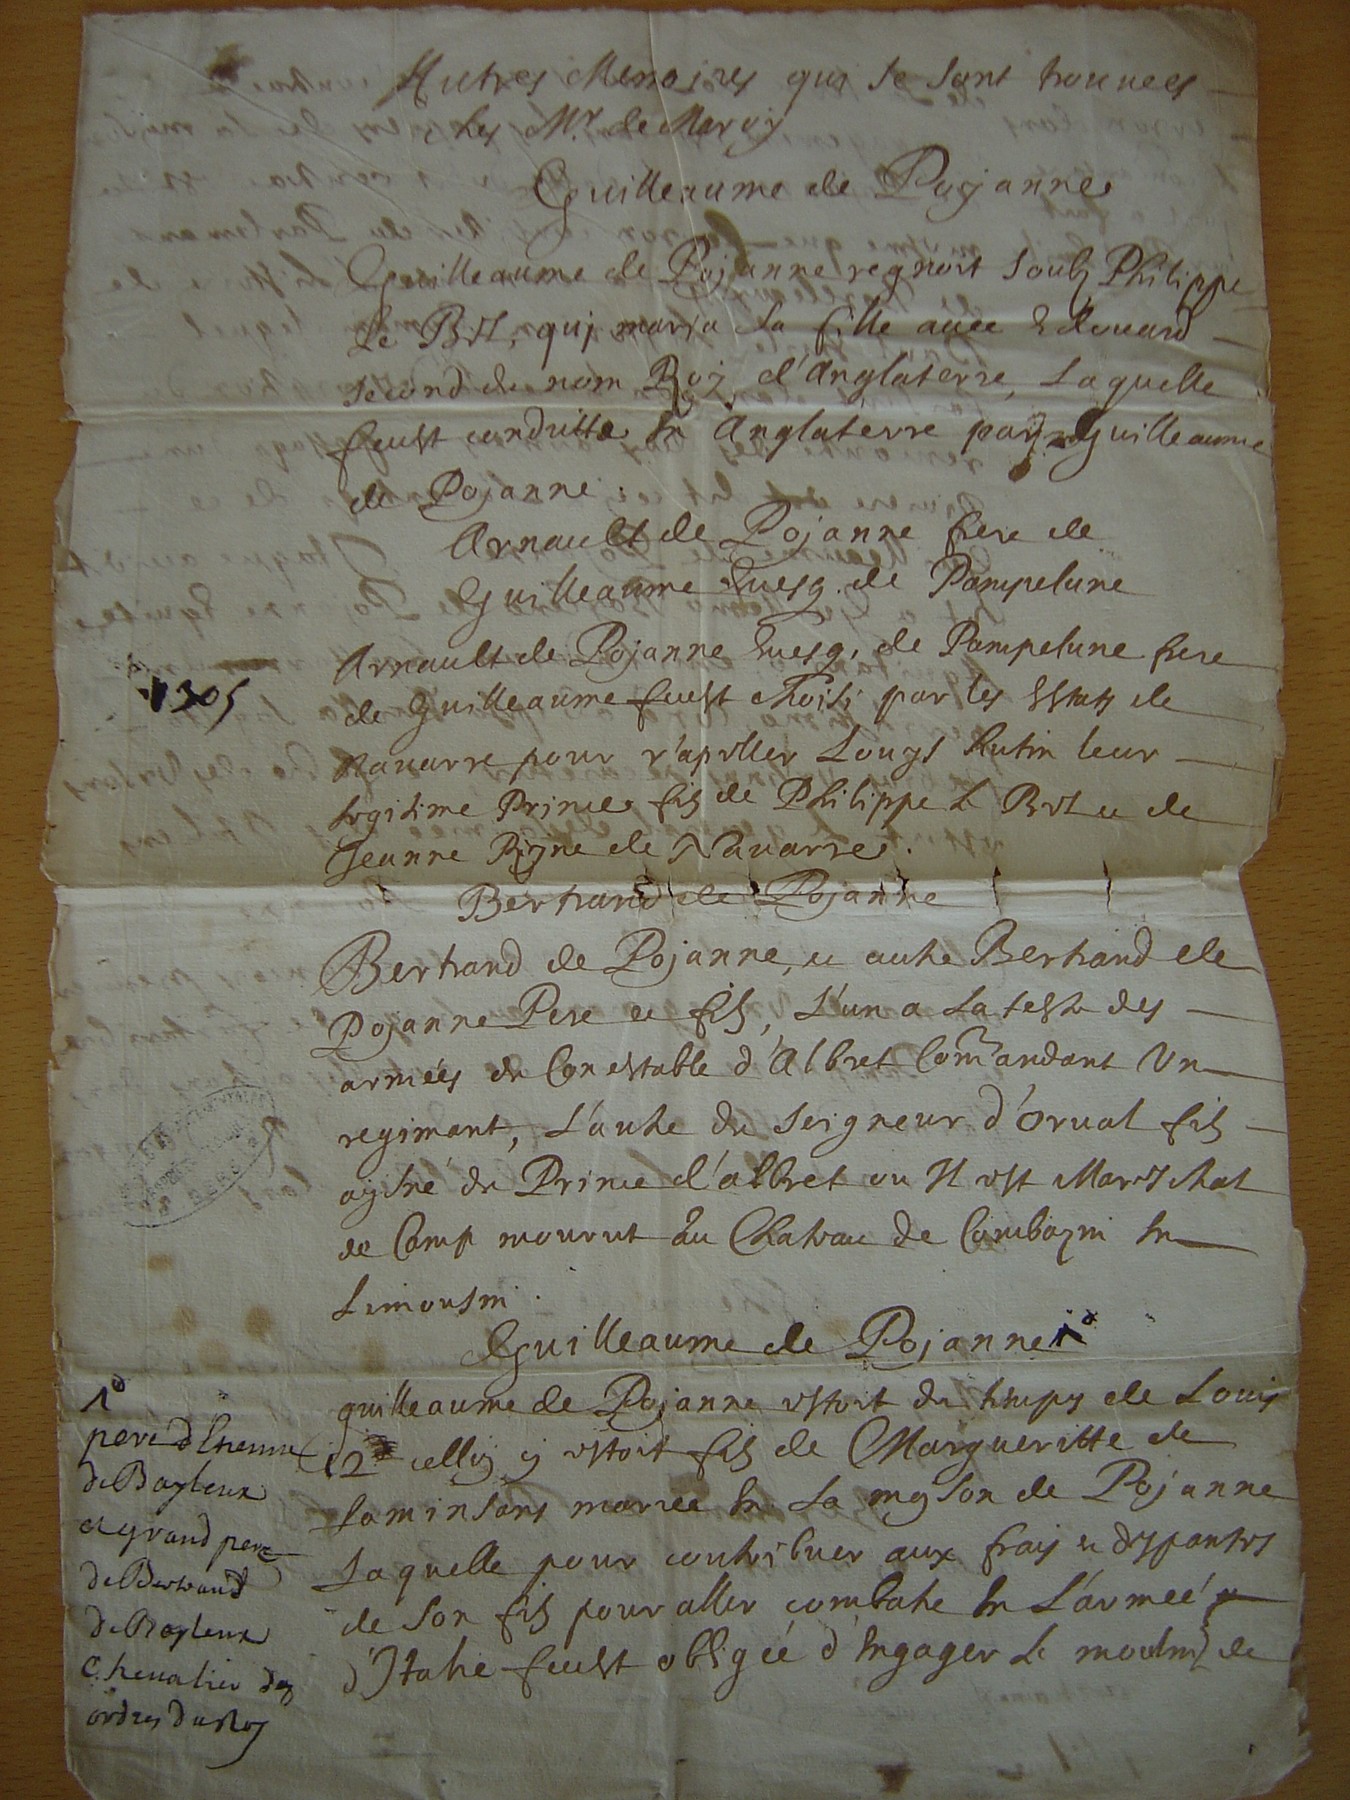 Autres Memoires qui se sont trouuees
ches Mr. de Maroy
Guilleaume de Pojanne
Guilleaume de Pojanne regnoit soubz Philippe
le Bel, quj maria sa fille auec Edouard
second du nom Roj d'Anglaterre, Laquelle
feust conduitte en Anglaterre par Guilleaume
de Pojanne.
Arnault de Pojanne frere de
Guilleaume Euesq. de Pampelune
Arnault de Pojanne Euesq. de Pampelune frere
1305
de Guilleaume feust choisi par les Estats de
Nauarre pour r'apeller Louys Hutin leur
legitime Prince fils de Philippe le Bel et de
Jeanne Reyne de Nauarre.
Bertrand de Pojanne
Bertrand de Pojanne, et autre Bertrand de
Pojanne Pere et fils, L'un a la teste des
armées du Conestable d'Albret Commandant Un
regimant, L'autre du Seigneur d'Orual fils
aysné du Prince d'albret ou Il est Mareschal
de Camp mourut au Chateau de Combozin En
Limousin.
Guilleaume de Pojanne 1o
guilleaume de Pojanne estoit du temps de Louis
12e celluy cy estoit fils de Margueritte de
Laminsans mariée En La mayson de Pojanne
Laquelle pour contribuer aux frais et despances
de son fils pour aller combatre En L'armée
d'Italie feust obligée d'Engager Le moulin de
1o
pere d'Etienne
de Bayleux
et grand pere
de Bertrand
de Bayleux
Cheualier des
ordres du Roy